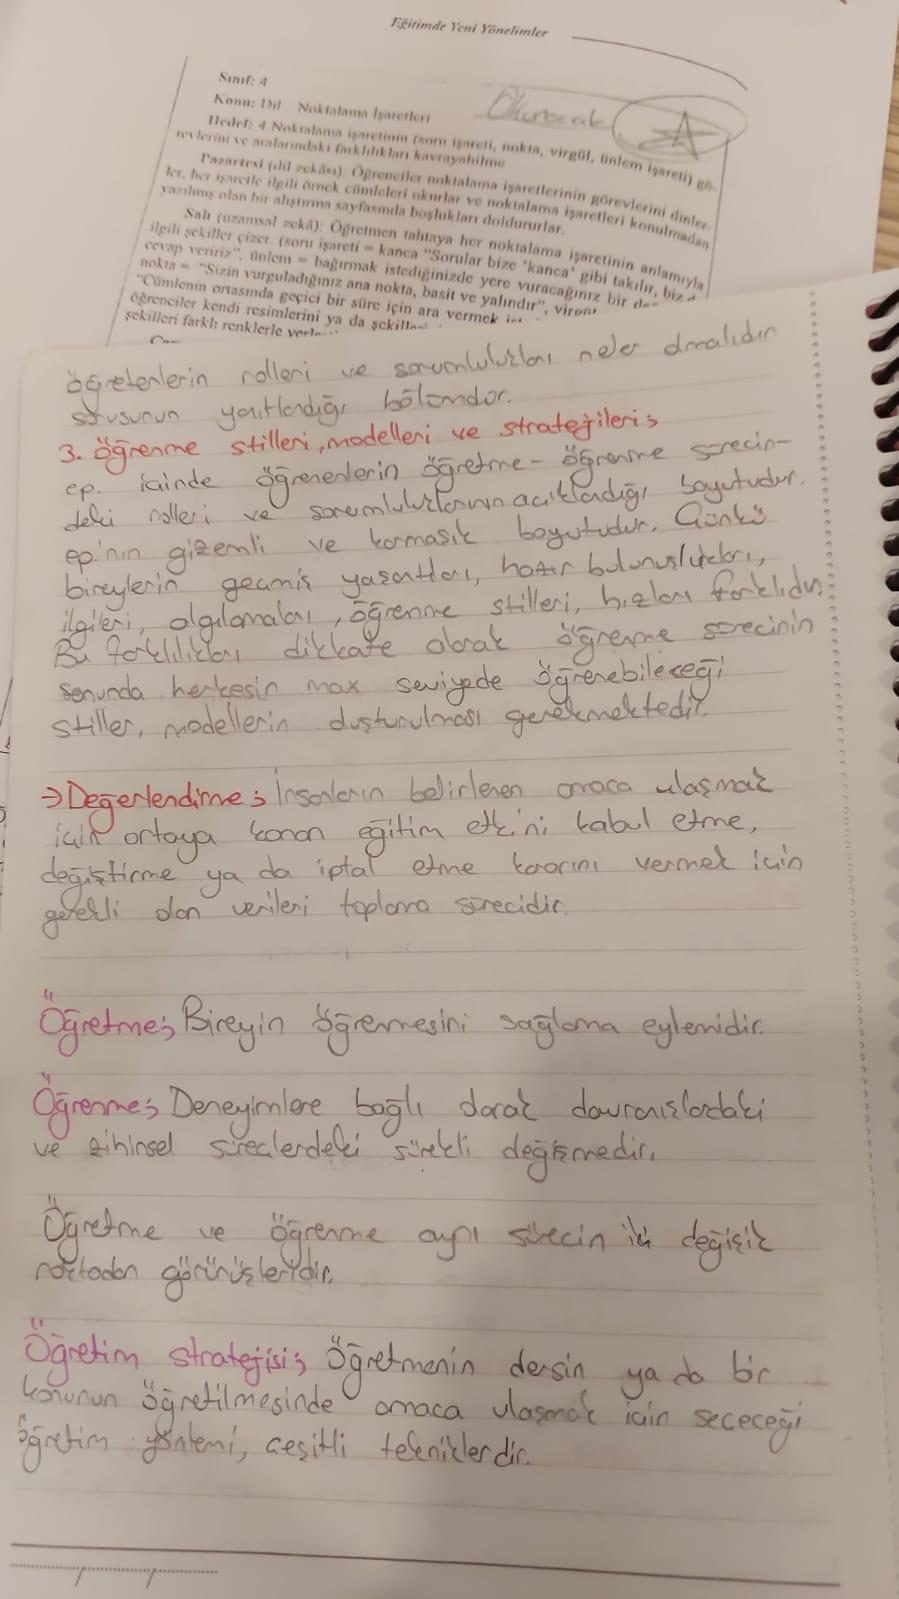 Eğitimde Yeni Yönelimler
Sınıf: 4
Konu: Dil Noktalama İşaretleri
Okunacak
Hedef: 4 Noktalama işaretinin (soru işareti, nokta, virgül, ünlem işareti) gö-
revlerini ve aralarındaki farklılıkları kavrayabilme
Pazartesi (dil zekâsı): Öğrenciler noktalama işaretlerinin görevlerini dinler-
ler, her işaretle ilgili örnek cümleleri okurlar ve noktalama işaretleri konulmadan
yazılmış olan bir alıştırma sayfasında boşlukları doldururlar.
Salı (uzamsal zekâ): Öğretmen tahtaya her noktalama işaretinin anlamıyla
ilgili şekiller çizer. (soru işareti = kanca "Sorular bize 'kanca' gibi takılır, biz
cevap veririz", ünlem = bağırmak istediğinizde yere vuracağınız bir
nokta = "Sizin vurguladığınız ana nokta, basit ve yalındır",
"Cümlenin ortasında geçici bir süre için ara vermek
öğrenciler kendi resimlerini ya da
şekilleri farklı renklerle
öğretenlerin rolleri ve sorumlulukları neler olmalıdır
sorusunun yanıtlandığı bölümdür.
3. Öğrenme stilleri, modelleri ve stratejileri;
ep. içinde öğrenenlerin öğretme-öğrenme sürecin-
deki rolleri ve sorumluluklarının açıklandığı boyutudur.
ep.'nın gizemli ve karmaşık boyutudur. Çünkü
bireylerin geçmiş yaşantıları, hazır bulunuşlukları,
ilgileri, algılamaları, öğrenme stilleri, hızları farklıdır.
Bu farklılıkları dikkate alarak öğrenme sürecinin
sonunda herkesin max seviyede öğrenebileceği
stiller, modellerin oluşturulması gerekmektedir.
→Değerlendirme; İnsanların belirlenen amaca ulaşmak
için ortaya konan eğitim etk'ni kabul etme,
değiştirme ya da iptal etme kararını vermek için
gerekli olan verileri toplama sürecidir.
Öğretme; Bireyin öğrenmesini sağlama eylemidir.
Öğrenme; Deneyimlere bağlı olarak davranışlardaki
ve zihinsel süreçlerdeki sürekli değişmedir.
Öğretme ve öğrenme aynı sürecin iki değişik
noktadan görünüşleridir.
Öğretim stratejisi; Öğretmenin dersin ya da bir
konunun öğretilmesinde amaca ulaşmak için seçeceği
öğretim yöntemi, çeşitli tekniklerdir.